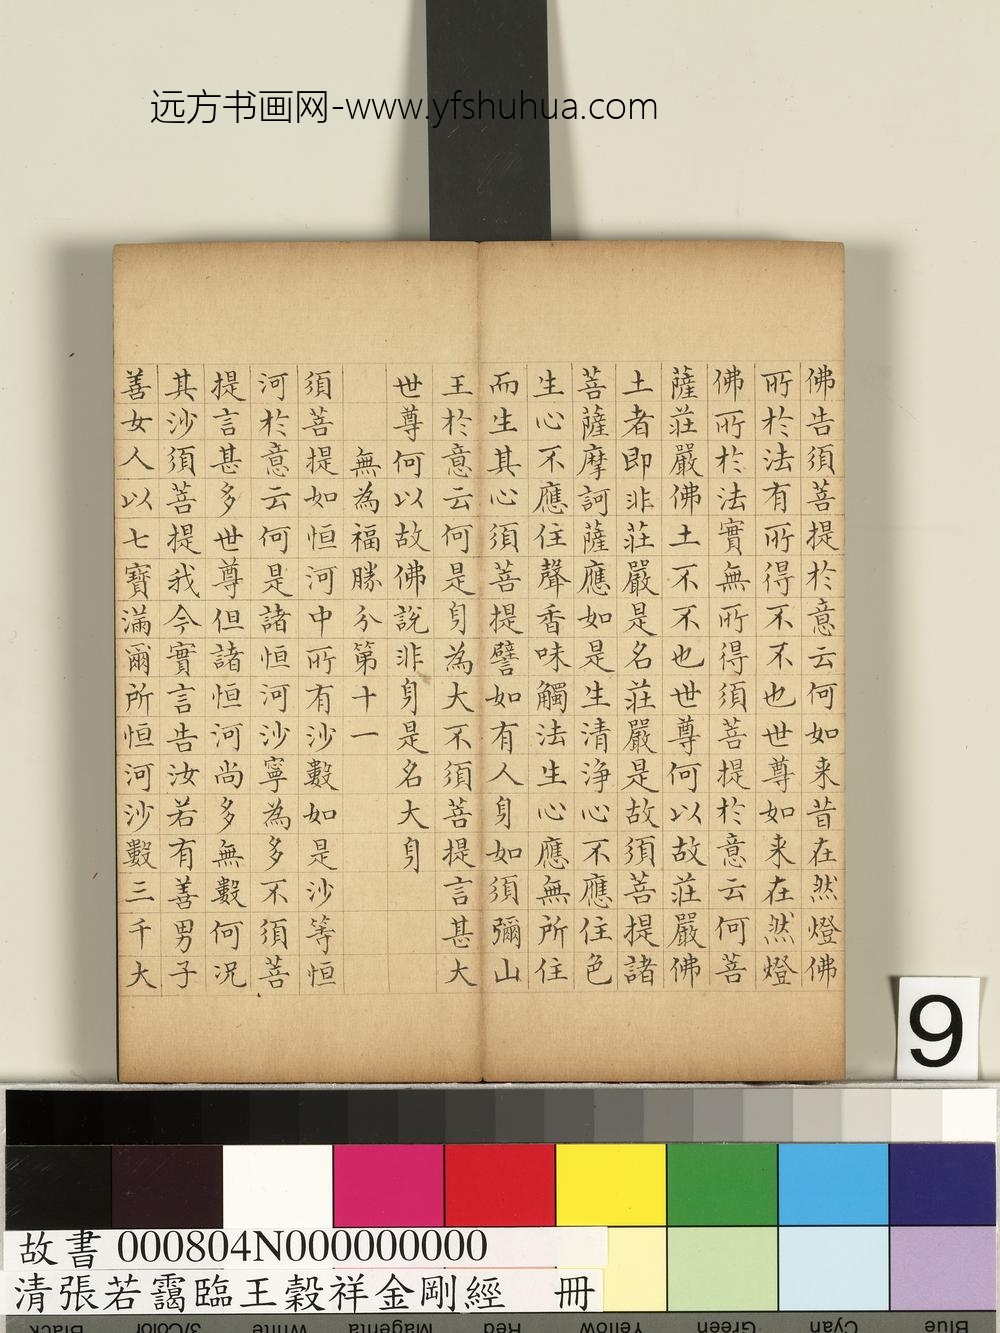 远方书画网-www.yfshuhua.com
佛告須菩提於意云何如来昔在然燈佛
所於法有所得不不也世尊如来在然燈
佛所於法實無所得須菩提於意云何菩
薩莊嚴佛土不不也世尊何以故莊嚴佛
土者即非莊嚴是名莊嚴是故須菩提諸
菩薩摩訶薩應如是生清浄心不應住色
生心不應住聲香味觸法生心應無所住
而生其心須菩提譬如有人身如須彌山
王於意云何是身為大不須菩提言甚大
世尊何以故佛說非身是名大身
無為福勝分第十一
須菩提如恒河中所有沙數如是沙等恒
河於意云何是諸恒河沙寧為多不須菩
提言甚多世尊但諸恒河尚多無數何况
其沙須菩提我今實言告汝若有善男子
善女人以七寶滿爾所恒河沙數三千大
9
故書 000804N000000000
清張若靄臨王穀祥金剛經 冊
Black 3/Color White Magenta Red Yellow Green Cyan Blue